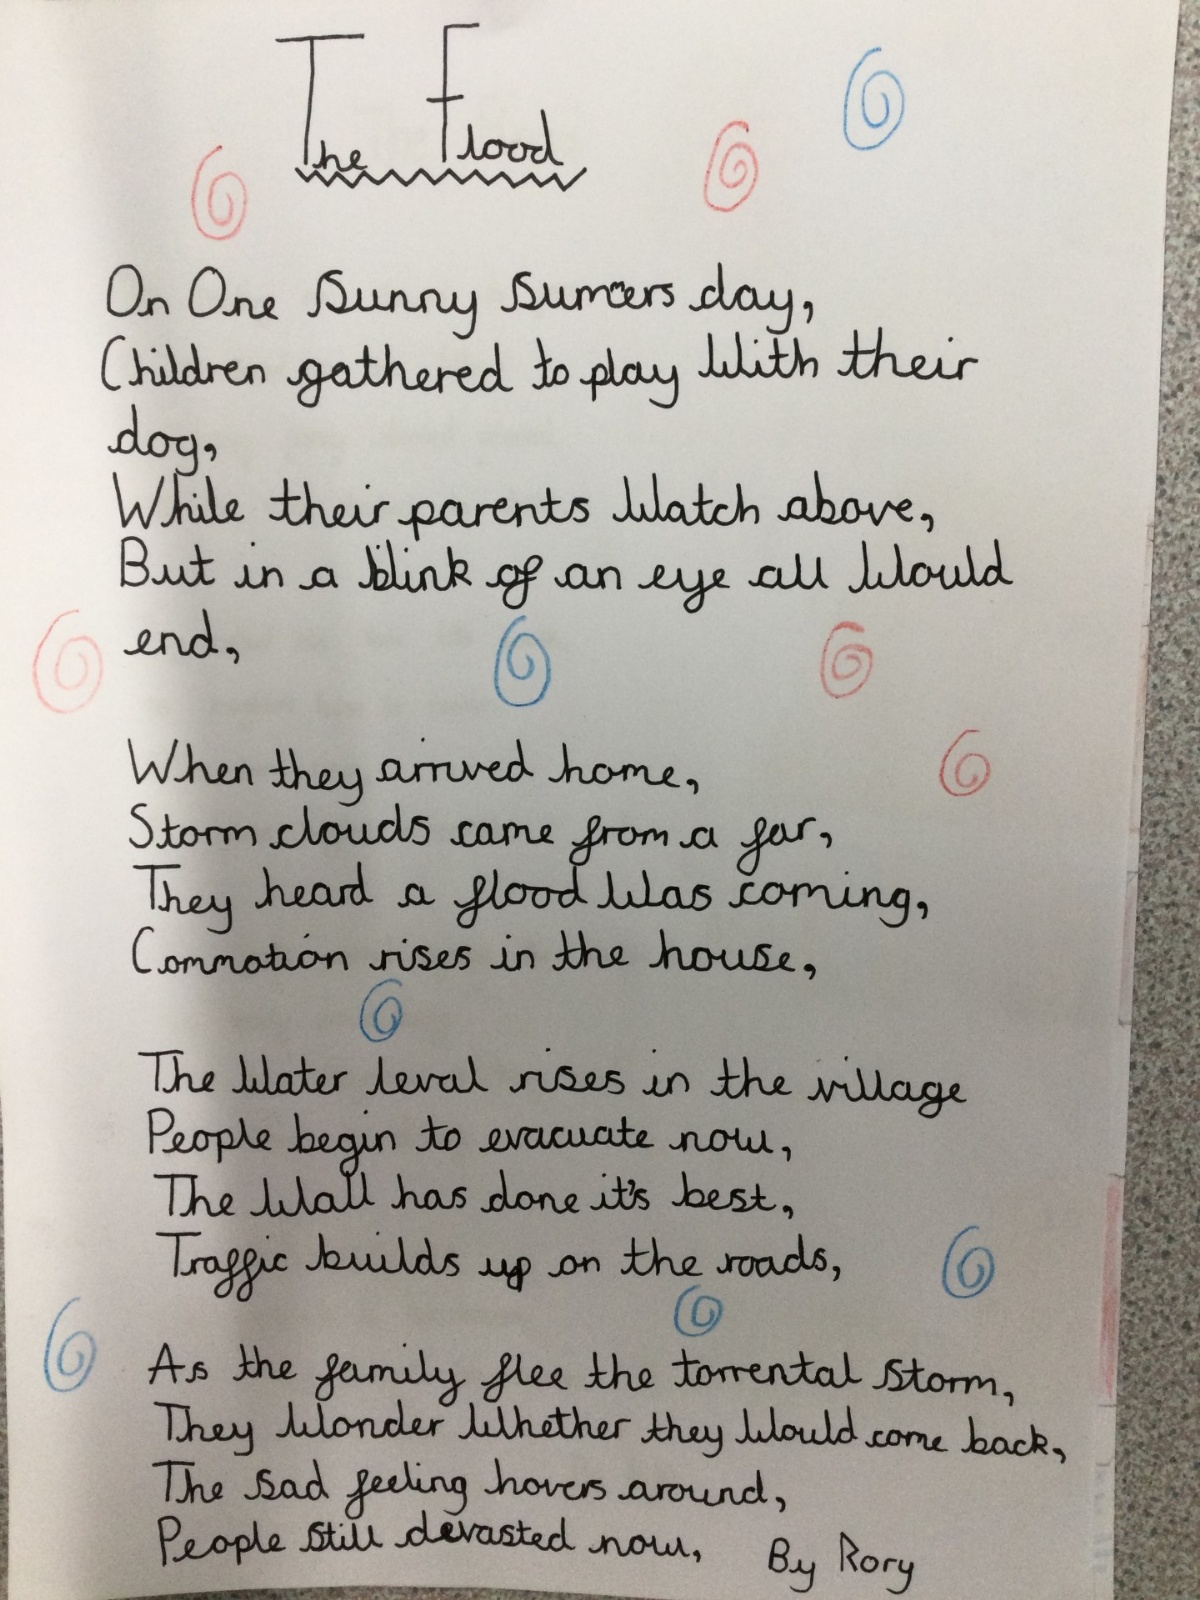 The Flood
On One Sunny Sumers day,
Children gathered to play With their
dog,
While their parents Watch above,
But in a blink of an eye all Would
end,
When they arrived home,
Storm clouds came from a far,
They heard a flood Was coming,
Commotion rises in the house,
The Water leval rises in the village
People begin to evacuate now,
The Wall has done it's best,
Traffic builds up on the roads,
As the family flee the torrental Storm,
They Wonder Whether they Would come back,
The sad feeling hovers around,
People still devasted now,
By Rory